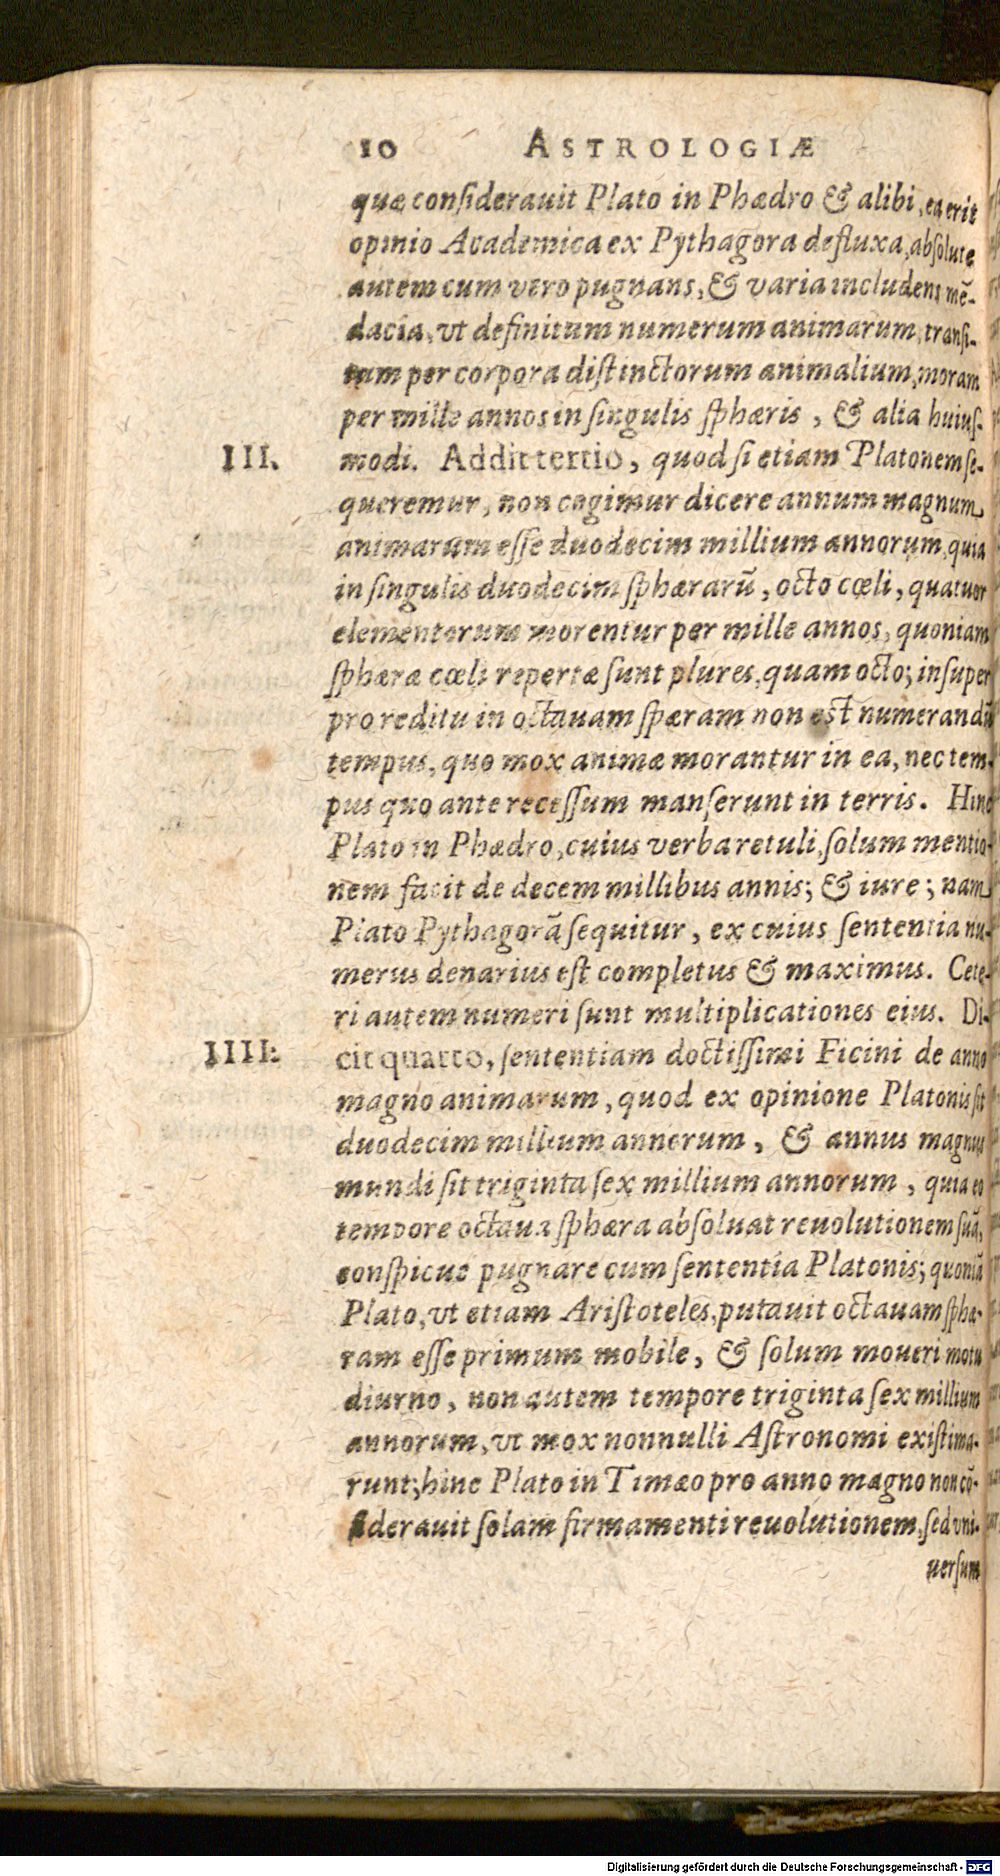 10 ASTROLOGIÆ
quæ conſiderauit Plato in Phædro & alibi, ea erit
opinio Academica ex Pythagora defluxa, abſolute
autem cum vero pugnans, & varia includens mē-
dacia, vt definitum numerum animarum, tranſi-
tum per corpora diſtinctorum animalium, moram
per mille annos in ſingulis ſphæris, & alia huiuſ-
III. modi. Addit tertio, quod ſi etiam Platonem ſe-
queremur, non cogimur dicere annum magnum
animarum eſſe duodecim millium annorum, quia
in ſingulis duodecim ſphærarū, octo cœli, quatuor
elementorum morentur per mille annos, quoniam
ſphæræ cœli repertæ ſunt plures, quam octo; inſuper
pro reditu in octauam ſpæram non est numerandū
tempus, quo mox animæ morantur in ea, nec tem-
pus quo ante receſſum manſerunt in terris. Hinc
Plato in Phædro, cuius verba retuli, ſolum mentio-
nem facit de decem millibus annis; & iure; nam
Plato Pythagorā ſequitur, ex cuius ſententia nu-
merus denarius eſt completus & maximus. Cete-
ri autem numeri ſunt multiplicationes eius. Di-
IIII. cit quarto, ſententiam doctiſſimi Ficini de anno
magno animarum, quod ex opinione Platonis ſit
duodecim millium annorum, & annus magnus
mundi ſit triginta ſex millium annorum, quia eo
tempore octaua ſphæra abſoluat reuolutionem ſuā,
conſpicue pugnare cum ſententia Platonis; quoniā
Plato, vt etiam Ariſtoteles, putauit octauam ſphæ-
ram eſſe primum mobile, & ſolum moueri motu
diurno, non autem tempore triginta ſex millium
annorum, vt mox nonnulli Aſtronomi exiſtima-
runt; hinc Plato in Timæo pro anno magno non cō-
ſiderauit ſolam firmamenti reuolutionem, ſed vni-
uerſum
Digitalisierung gefördert durch die Deutsche Forschungsgemeinschaft - DFG